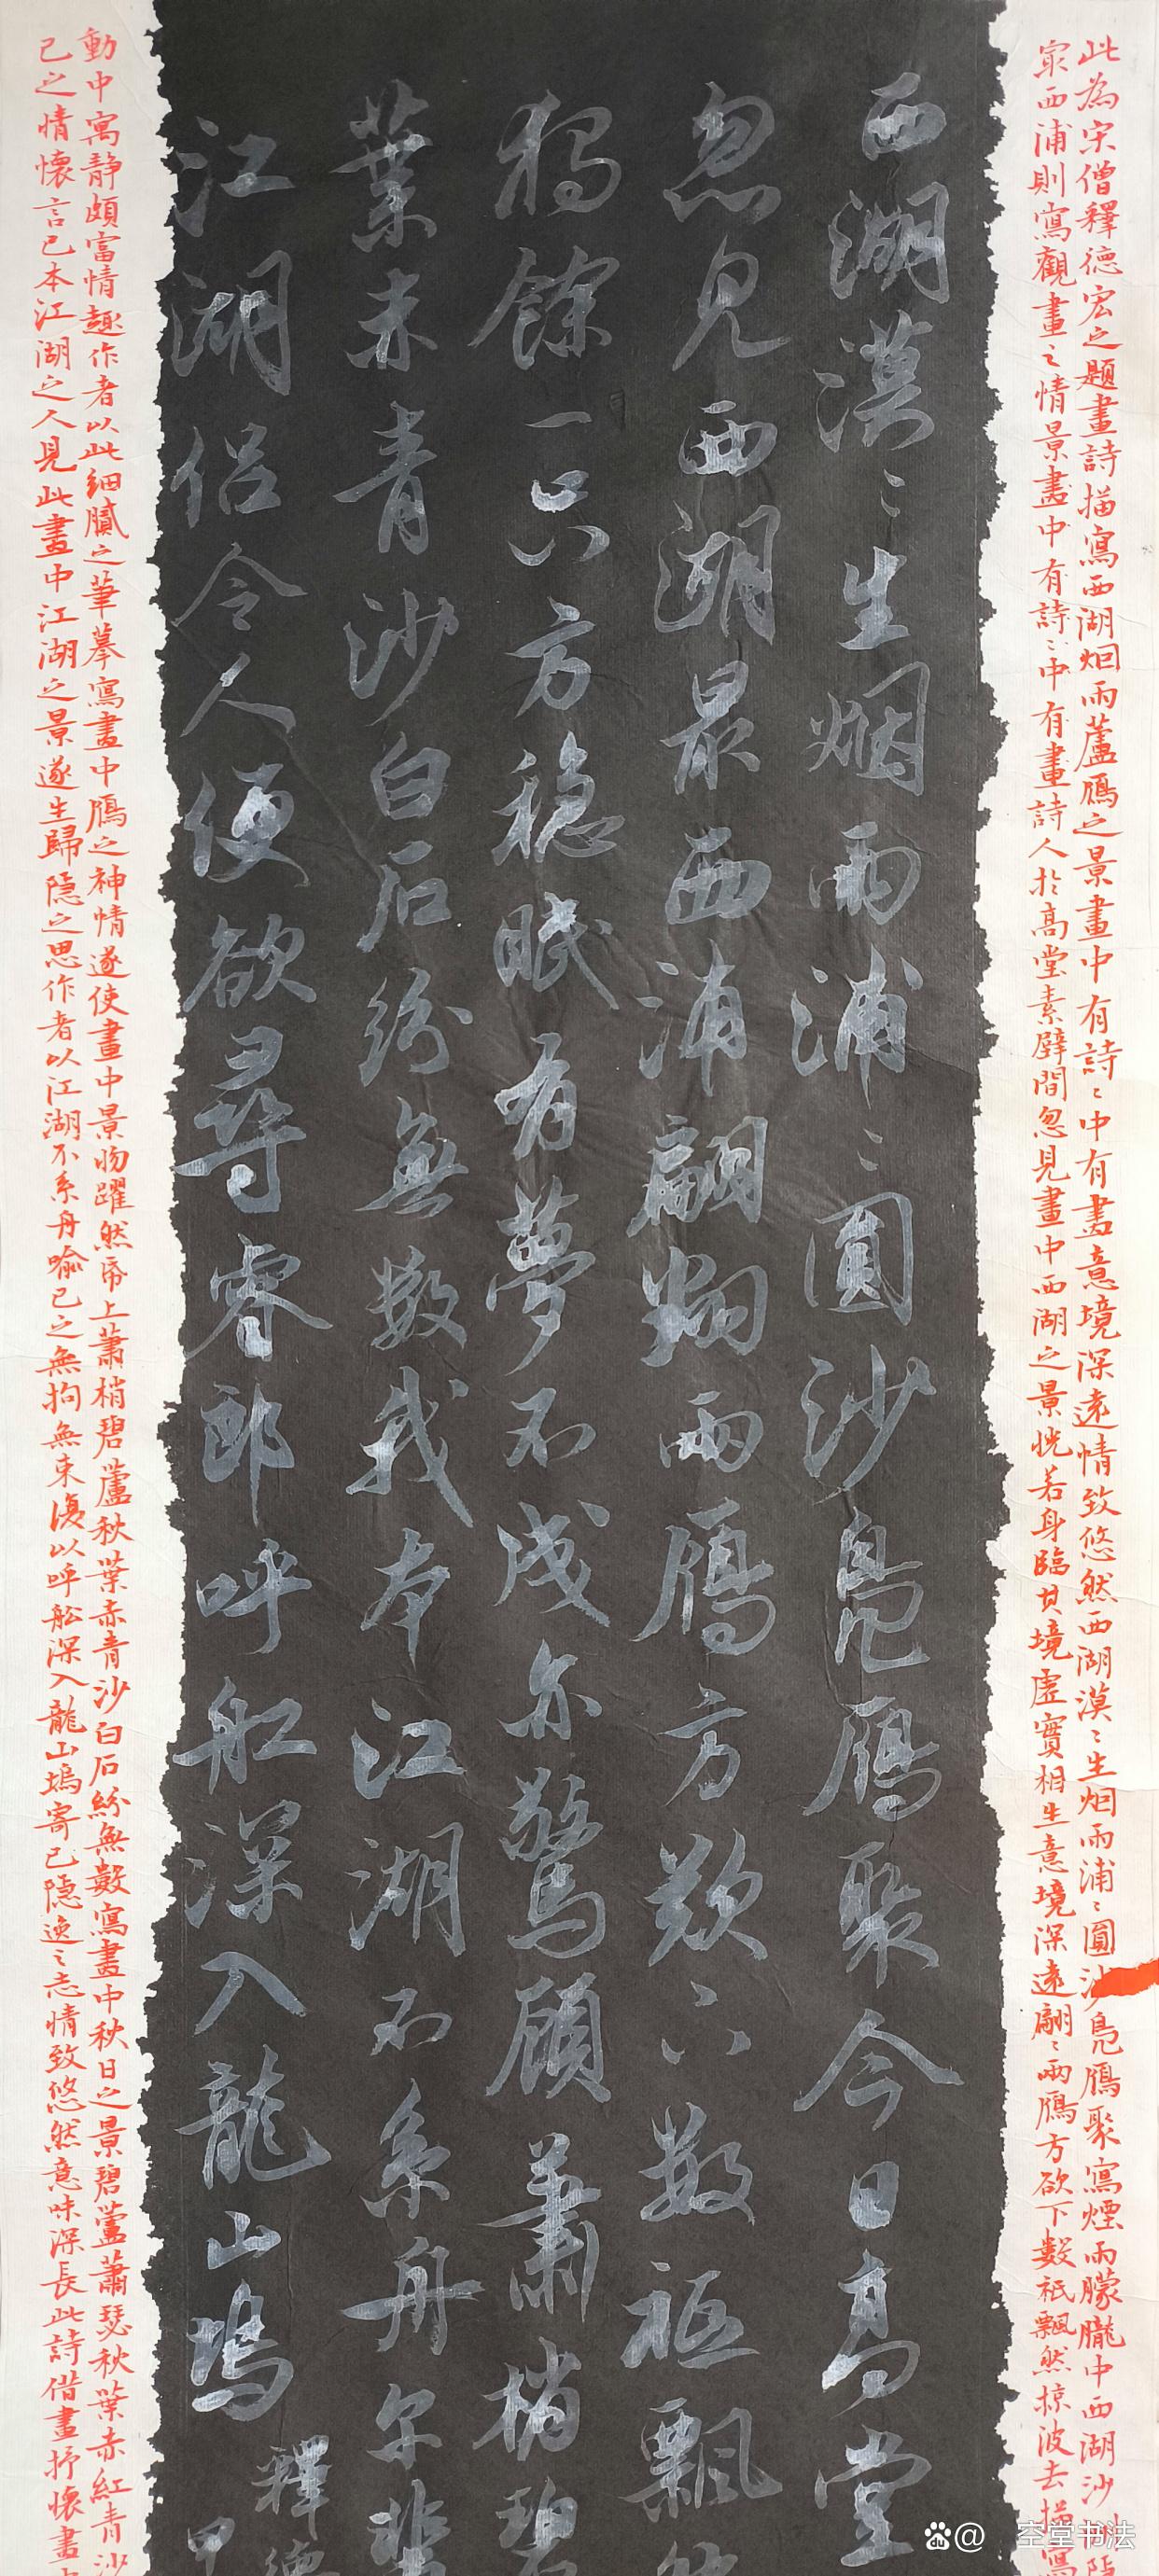 此為宋僧釋德宏之題畫詩描寫西湖烟雨蘆鴈之景畫中有詩〻中有畫意境深遠情致悠然西湖漠〻生烟雨浦〻圓沙鳧鴈聚寫煙雨朦朧中西湖沙
家西浦則寫觀畫之情景畫中有詩〻中有畫詩人於高堂素壁間忽見畫中西湖之景恍若身臨其境虛實相生意境深遠翩〻兩鴈方欲下數祇飄然掠波去描寫
西湖漠〻生烟雨浦〻圓沙鳧鴈聚今日高堂
忽見西湖最西浦翩翩兩鴈方欲下數祇飄
獨餘一只方穩眠有夢不成亦驚顧蕭梢碧
葉赤青沙白石紛無數我本江湖不系舟尔輩
江湖侶令人便欲尋睿郎呼船深入龍山塢
釋德
動中寓静頗富情趣作者以此細膩之筆摹寫畫中鴈之神情遂使畫中景物躍然帋上蕭梢碧蘆秋葉赤青沙白石紛無數寫畫中秋日之景碧蘆蕭瑟秋葉赤紅青沙
己之情懷言己本江湖之人見此畫中江湖之景遂生歸隐之思作者以江湖不系舟喻己之無拘無束復以呼船深入龍山塢寄己隐逸之志情致悠然意味深長此詩借畫抒懷畫
@空堂书法